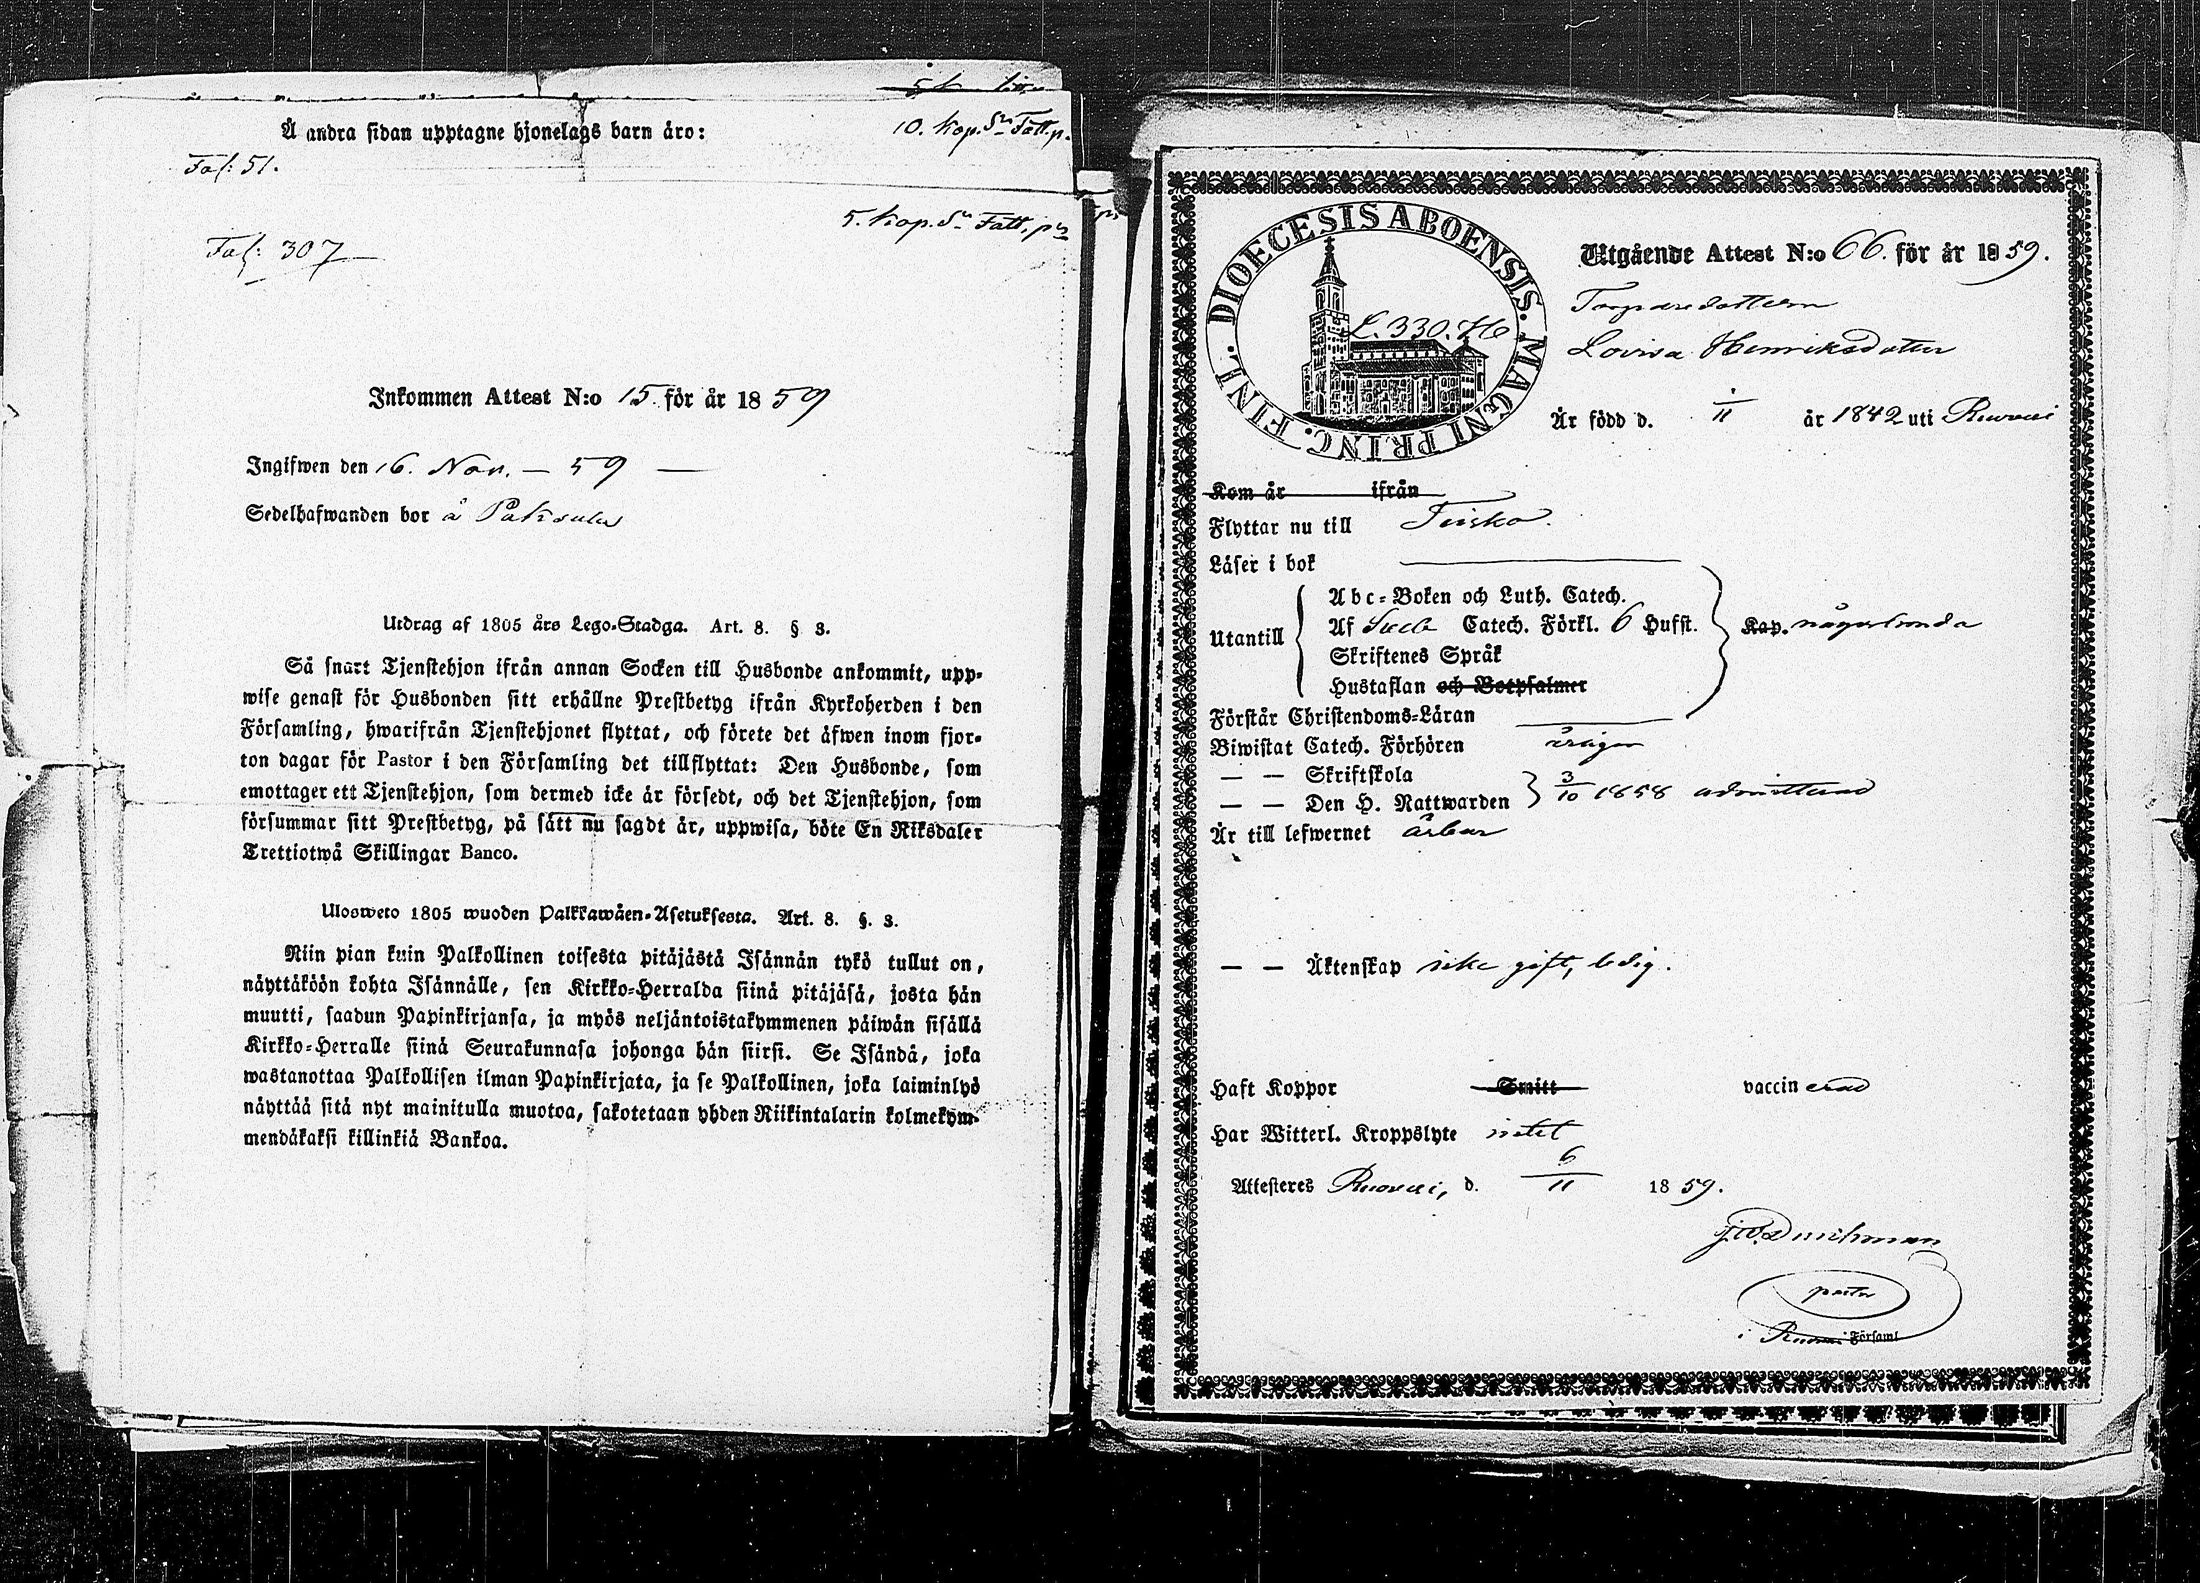 Å andra sidan upptagne hjonelags barn äro:
10. Kop. Sr Fatt. p.
Fol: 51.
5. Kop. Sr Fatt. prs
Fol: 307
Inkommen Attest N:o 15. för år 1859
Ingifwen den 16. Nov. – 59 –
Sedelhafwanden bor å Paksula
Utdrag af 1805 års Lego-Stadga. Art. 8. § 3.
Så snart Tjenstehjon ifrån annan Socken till Husbonde ankommit, upp-
wise genast för Husbonden sitt erhållne Prestbetyg ifrån Kyrkoherden i den
Församling, hwarifrån Tjenstehjonet flyttat, och förete det äfwen inom fjor-
ton dagar för Pastor i den Församling det tillflyttat: Den Husbonde, som
emottager ett Tjenstehjon, som dermed icke är försedt, och det Tjenstehjon, som
försummar sitt Prestbetyg, på sätt nu sagdt är, uppwisa, böte En Riksdaler
Trettiotwå Skillingar Banco.
Ulosweto 1805 wuoden Palkkawäen-Asetuksesta. Art. 8. §. 3.
Niin pian kuin Palkollinen toisesta pitäjästä Isännän tykö tullut on,
näyttäköön kohta Isännälle, sen Kirkko-Herralda siinä pitäjäsä, josta hän
muutti, saadun Papinkirjansa, ja myös neljäntoistakymmenen päiwän sisällä
Kirkko-Herralle siinä Seurakunnasa johonga hän siirsi. Se Isändä, joka
wastanottaa Palkollisen ilman Papinkirjata, ja se Palkollinen, joka laiminlyö
näyttää sitä nyt mainitulla muotoa, sakotetaan yhden Riikintalarin kolmekym-
mendäkaksi killinkiä Bankoa.
DIOECESIS ABOENSIS. MAGNI PRINC. FINL.
L. 330. H6
Utgående Attest N:o 66. för år 1859.
Torparedottern
Lovisa Henriksdotter
Är född d. 1/11 år 1842 uti Ruovesi
Kom år ifrån
Flyttar nu till Teisko.
Läser i bok
Utantill
Abc-Boken och Luth. Catech.
Af Sveb Catech. Förkl. 6 Hufst.
Skriftenes Språk
Hustaflan och Botpsalmer
Kap. någorlunda
Förstår Christendoms-Läran
Biwistat Catech. Förhören årligen
— — Skriftskola
— — Den H. Nattwarden
3/10 1858 admitterad
Är till lefwernet ärbar
— — Äktenskap icke gift, ledig.
Haft Koppor Smitt vaccinerad
Har Witterl. Kroppslyte intet
Attesteres Ruovesi, d. 6/11 1859.
pastor
i Ruovesi Församl